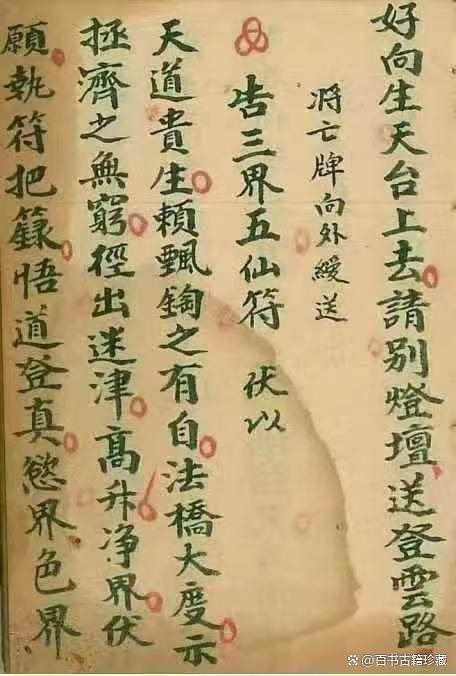 好向生天台上去請別燈壇送登雲路
将亡牌向外緩送
告三界五仙符 伏以
天道貴生頼甄鋾之有自法橋大度示
拯濟之無窮徑出迷津高升净界伏
願執符把籙悟道登真慾界色界
@百书古籍珍藏